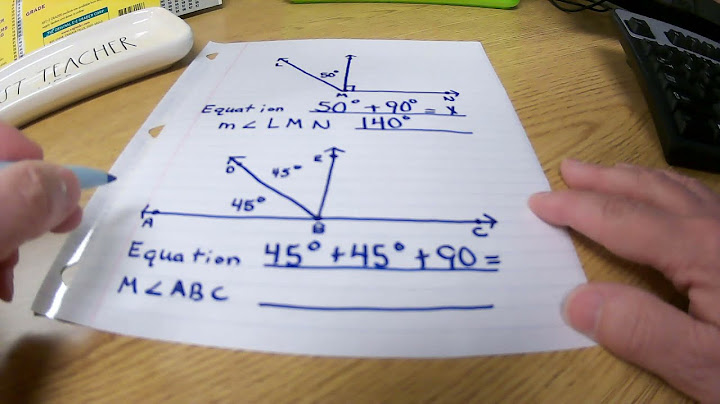 GRADE
ST TEACHER
L
50°
M
N
Equation 50° + 90° = x
m∠LMN 140°
D
45°
E
45°
A
B
C
Equation 45° + 45° + 90 =
M∠ABC